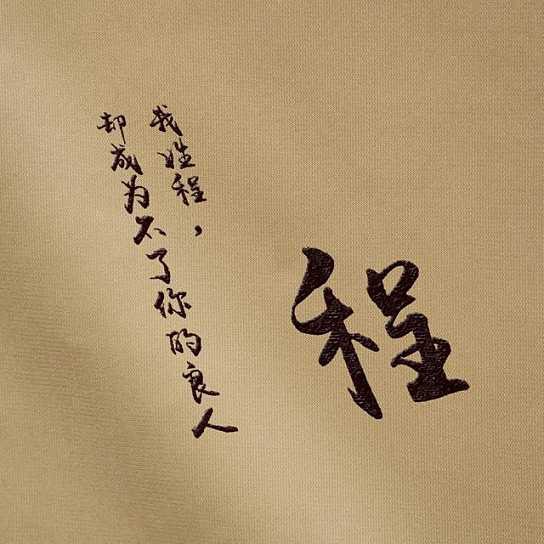 我姓程，
却成为不了你的良人
程